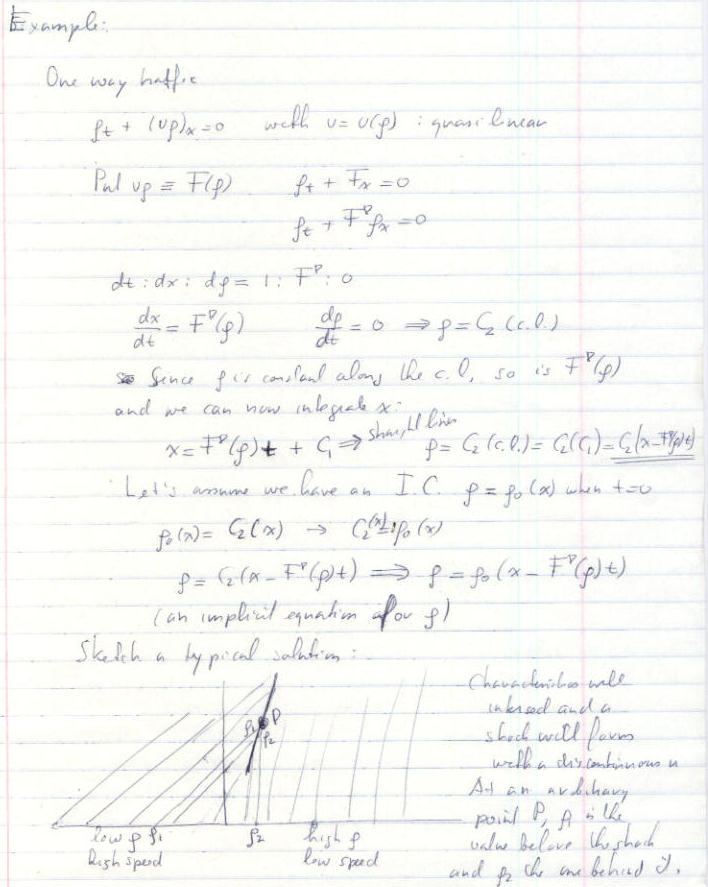 Example:
One way traffic
ρ_t + (υρ)_x = 0 with υ = υ(ρ) : quasi linear
Put υρ ≡ F(ρ) ρ_t + F_x = 0
ρ_t + F'ρ_x = 0
dt : dx : dρ = 1 : F' : 0
dx/dt = F'(ρ) dρ/dt = 0 ⇒ ρ = C₂ (c.l.)
Since ρ is constant along the c.l, so is F'(ρ)
and we can now integrate x:
x = F'(ρ)t + C₁ ⇒ straight lines ρ = C₂(c.l.) = C₂(C₁) = C₂(x-F'(ρ)t)
Let's assume we have an I.C. ρ = ρ₀(x) when t=0
ρ₀(x) = C₂(x) → C₂(x) = ρ₀(x)
ρ = C₂(x - F'(ρ)t) ⇒ ρ = ρ₀(x - F'(ρ)t)
(an implicit equation for ρ)
Sketch a typical solution:
Characteristics will
intersect and a
shock will form
with a discontinuous u
At an arbitrary
point P, ρ₁ is the
value before the shock
and ρ₂ the one behind it.
ρ₁ P
ρ₂
low ρ ρ₁ ρ₂ high ρ
high speed low speed